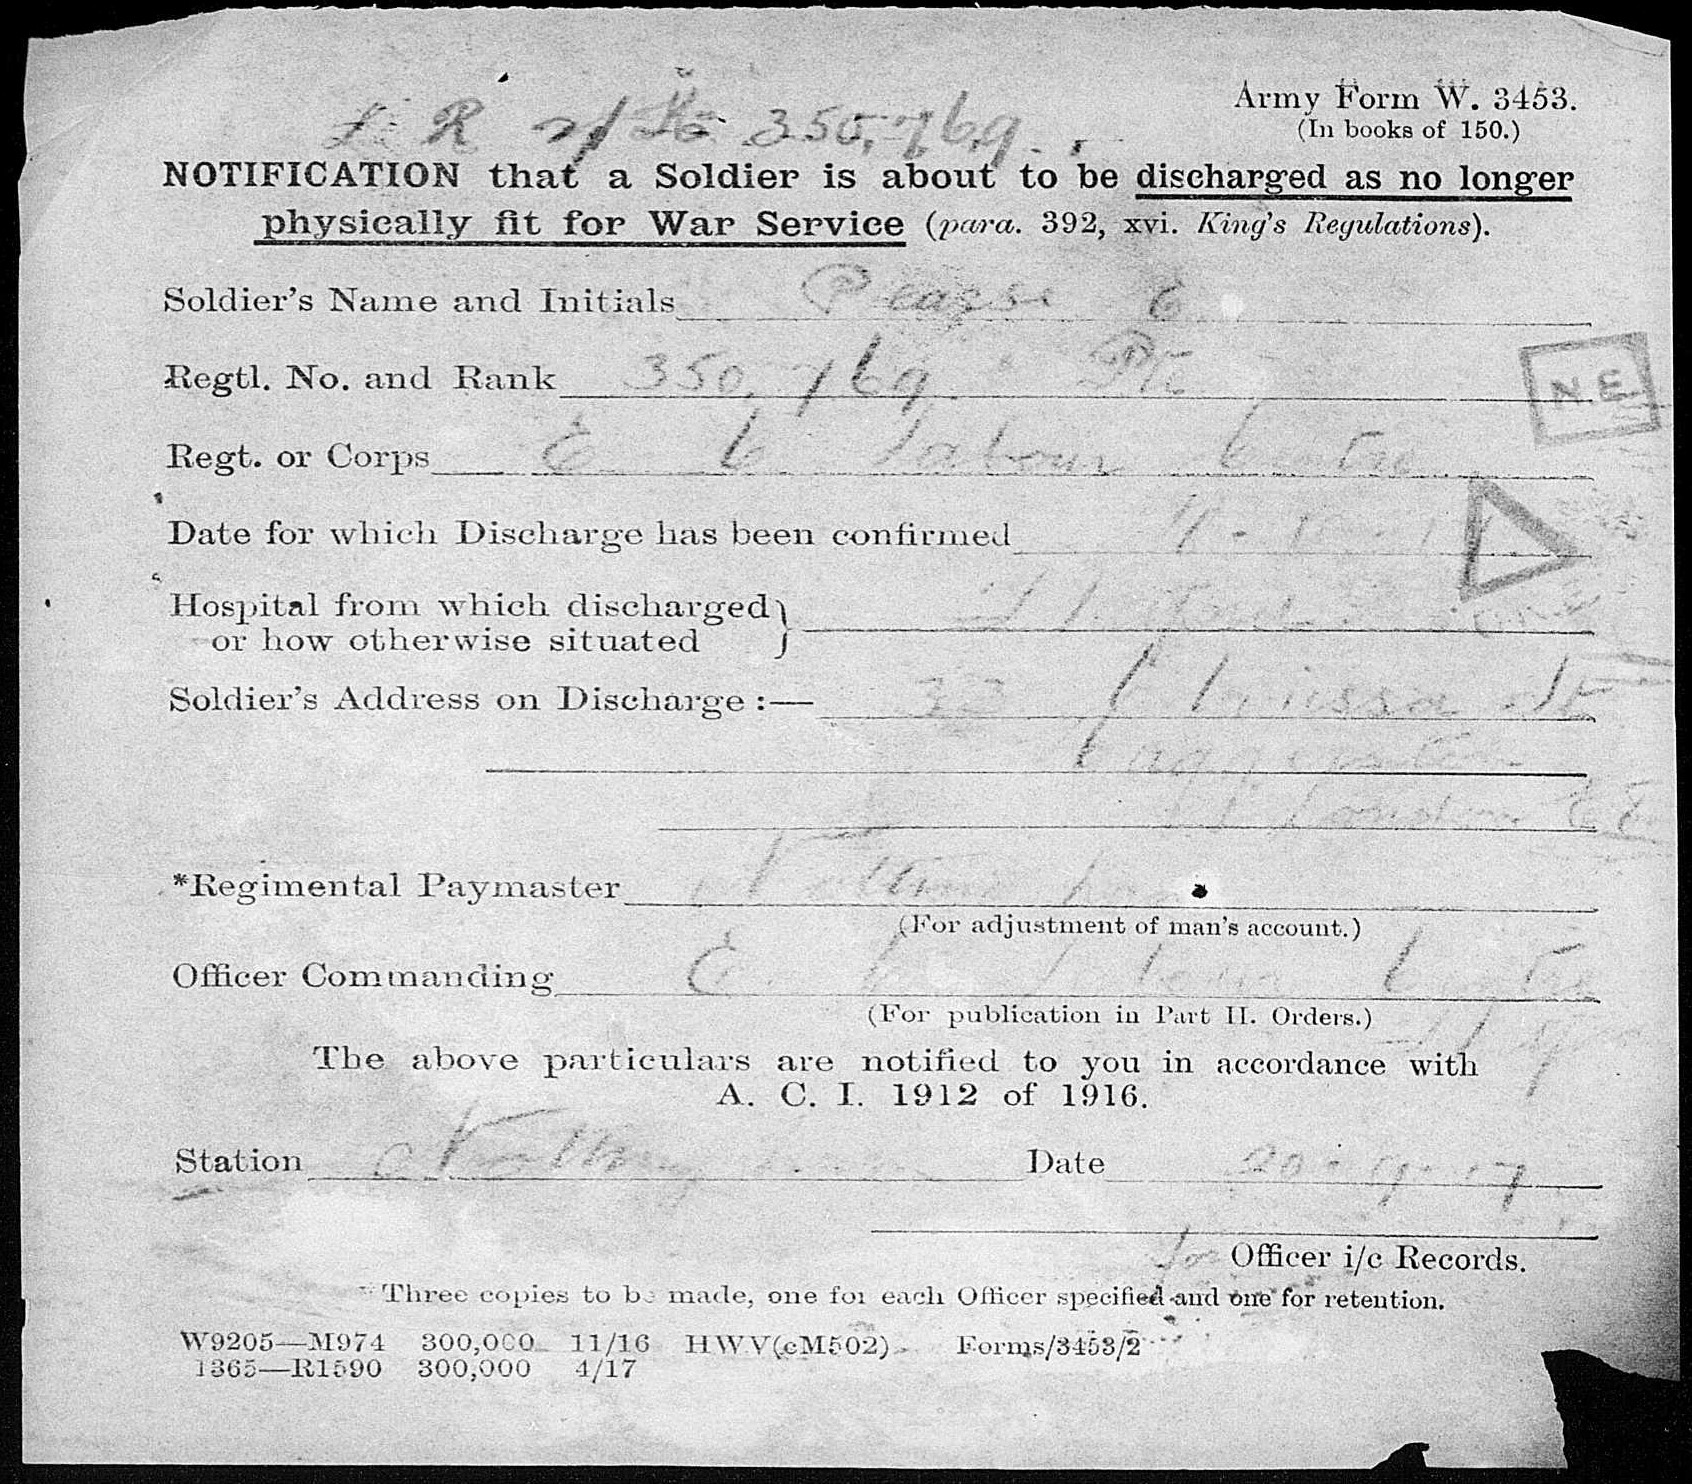 Army Form W. 3453.
(In books of 150.)
R 350,769.
NOTIFICATION that a Soldier is about to be discharged as no longer
physically fit for War Service (para. 392, xvi. King's Regulations).
Soldier's Name and Initials Pearse
Regtl. No. and Rank 350,769 Pte
N.E.
Regt. or Corps E C Labour Centre
Date for which Discharge has been confirmed
Hospital from which discharged
or how otherwise situated
Soldier's Address on Discharge :— 33 Clarissa St
Haggerston
London
*Regimental Paymaster Nottingham
(For adjustment of man's account.)
Officer Commanding E C Labour Centre
(For publication in Part II. Orders.)
The above particulars are notified to you in accordance with
A. C. I. 1912 of 1916.
Station Nottingham Date 20.9.17
for Officer i/c Records.
*Three copies to be made, one for each Officer specified and one for retention.
W9205—M974 300,000 11/16 HWV(cM502) Forms/3453/2
1365—R1590 300,000 4/17